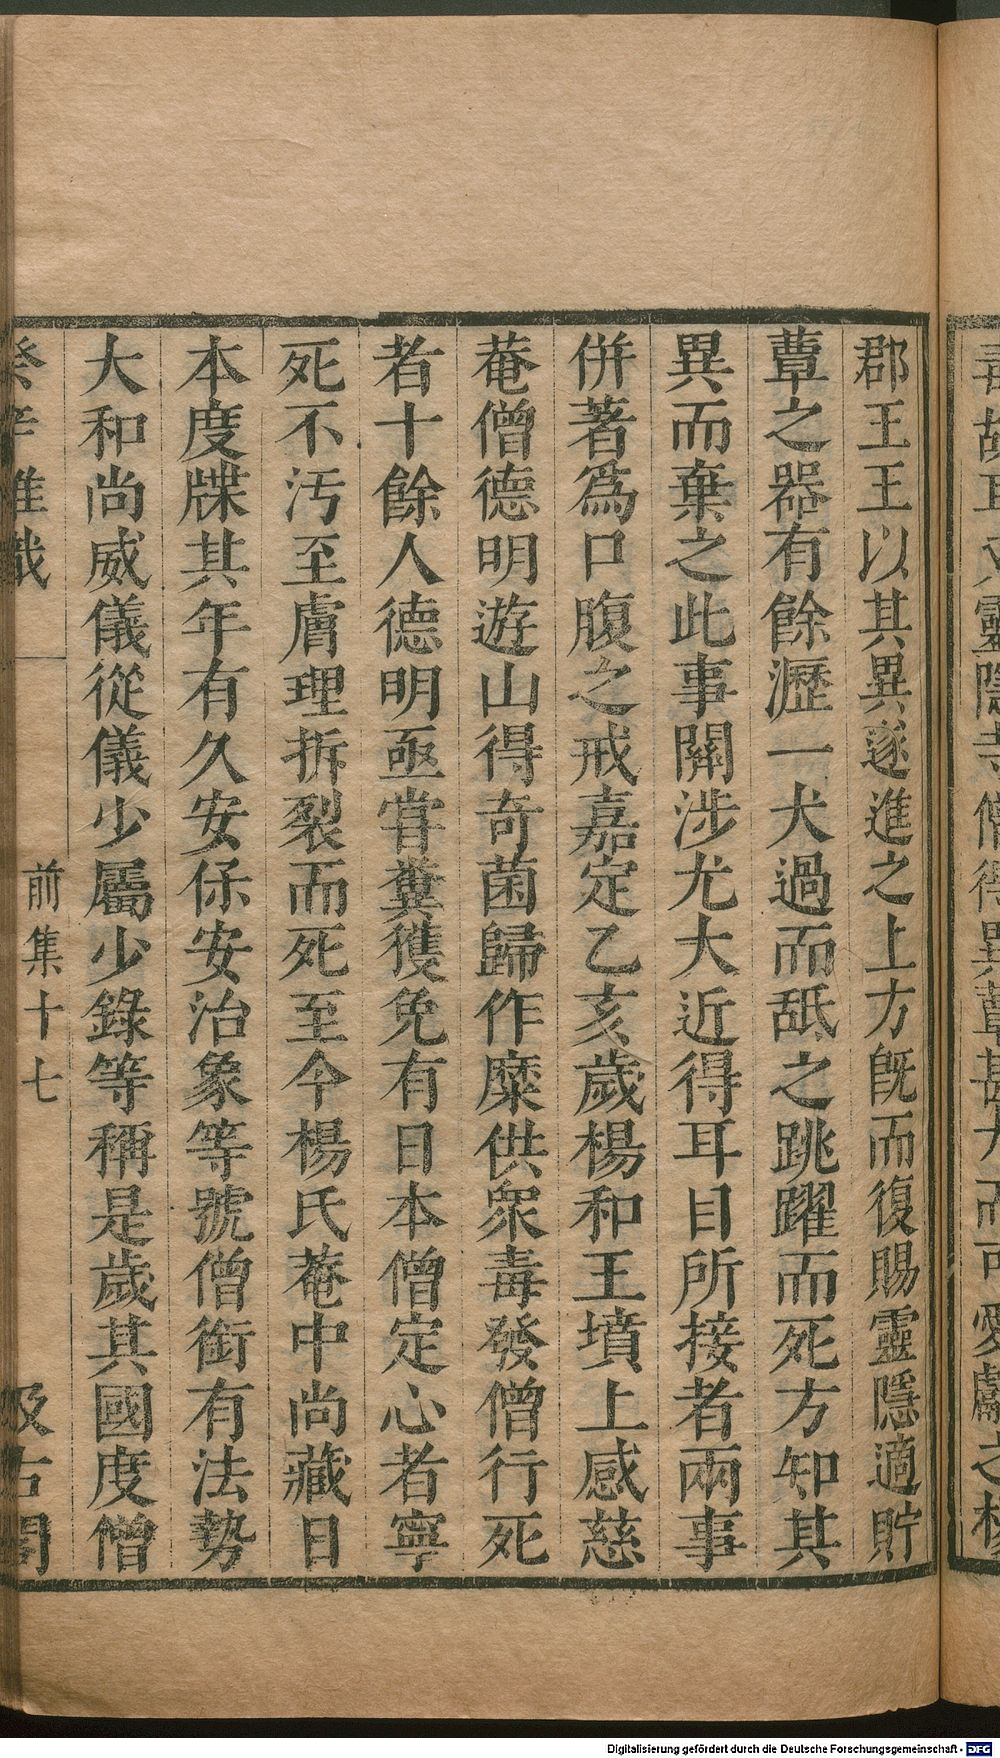 郡王王以其異遂進之上方旣而復賜靈隱適貯
蕈之器有餘瀝一犬過而舐之跳躍而死方知其
異而棄之此事關涉尤大近得耳目所接者兩事
併著爲口腹之戒嘉定乙亥歲楊和王墳上感慈
菴僧德明遊山得奇菌歸作糜供衆毒發僧行死
者十餘人德明亟嘗糞獲免有日本僧定心者寧
死不汚至膚理拆裂而死至今楊氏菴中尚藏日
本度牒其年有久安保安治象等號僧銜有法勢
大和尚威儀從儀少屬少錄等稱是歲其國度僧
癸辛雜識
前集十七
汲古閣
Digitalisierung gefördert durch die Deutsche Forschungsgemeinschaft - DFG